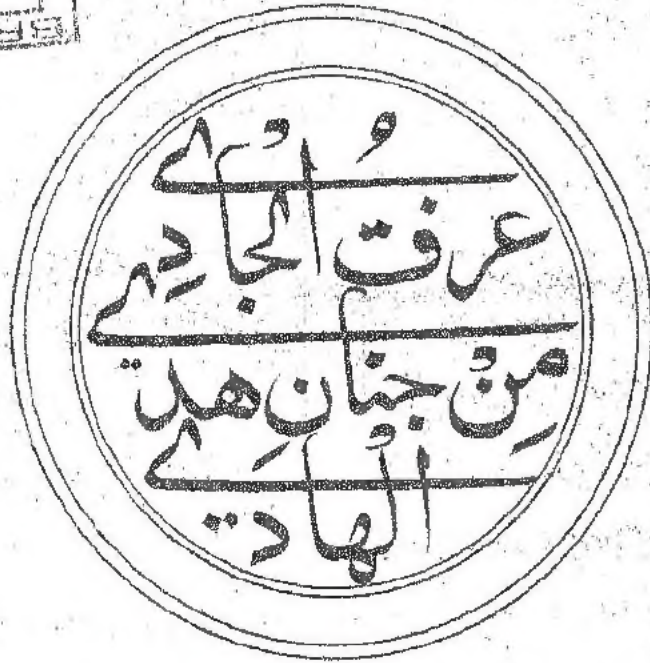 عرفُ الجادِي
مِنْ جنانِ هدي
الهادي